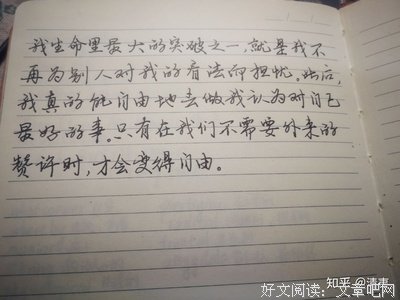 我生命里最大的突破之一,就是我不
再为别人对我的看法而担忧。此后,
我真的能自由地去做我认为对自己
最好的事。只有在我们不需要外来的
赞许时,才会变得自由。
知乎 @清事
好文阅读:文章吧网